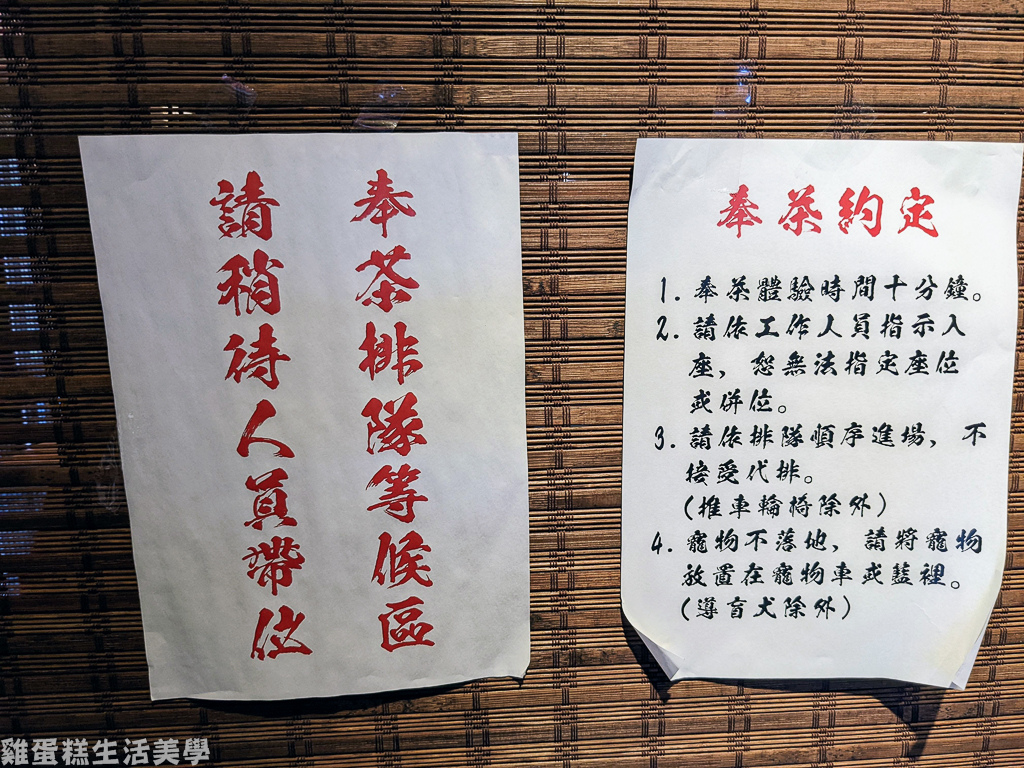 奉茶排隊等候區
請稍待人員帶位
奉茶約定
1. 奉茶體驗時間十分鐘。
2. 請依工作人員指示入
座，恕無法指定座位
或併位。
3. 請依排隊順序進場，不
接受代排。
(推車輪椅除外)
4. 寵物不落地，請將寵物
放置在寵物車或籃裡。
(導盲犬除外)
雞蛋糕生活美學